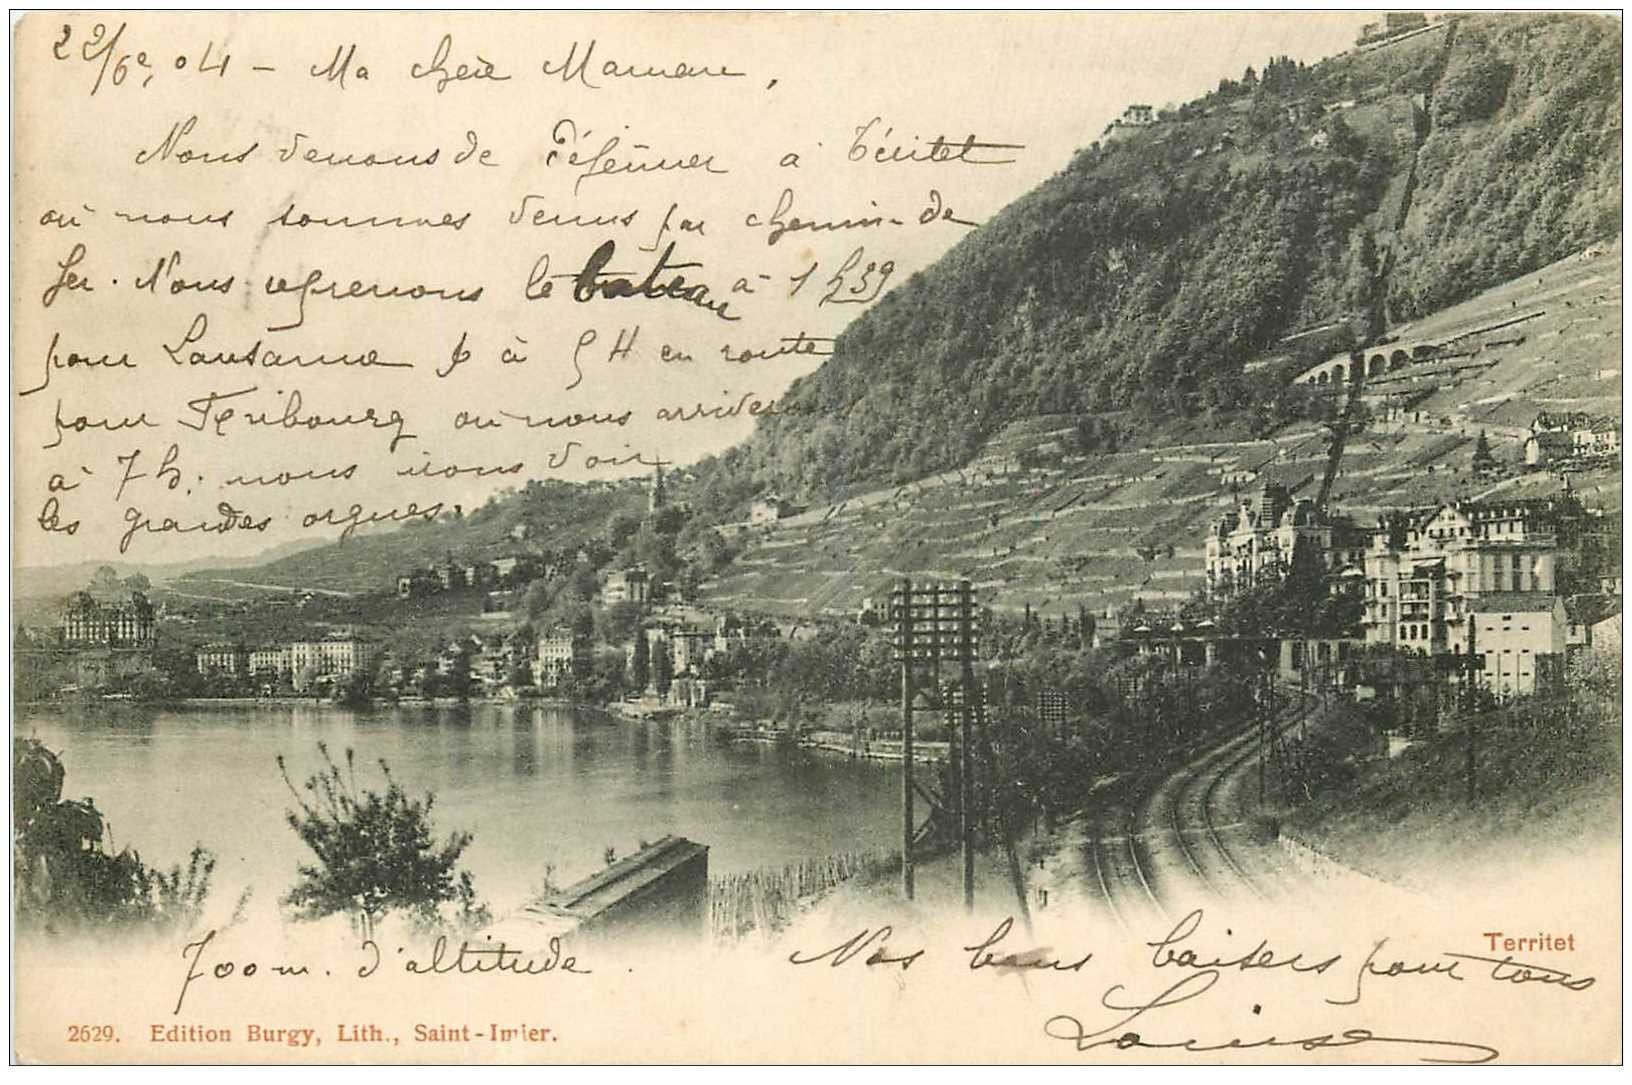 22/6e, 04 - Ma chère Maman,
Nous venons de déjeûner à Téritet
où nous sommes venus par chemin de
fer. Nous reprenons le bateau à 1 h 39
pour Lausanne à 5 H en route
pour Fribourg où nous arriverons
à 7 h. nous irons voir
les grandes orgues.
700 m. d'altitude.
Nos bons baisers pour tous
Louise
Territet
2629. Edition Burgy, Lith., Saint-Imier.